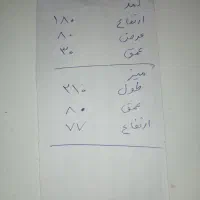 کمد
ارتفاع ۱۸۰
عرض ۸۰
عمق ۳۰
میز
طول ۲۱۰
عمق ۸۰
ارتفاع ۷۷